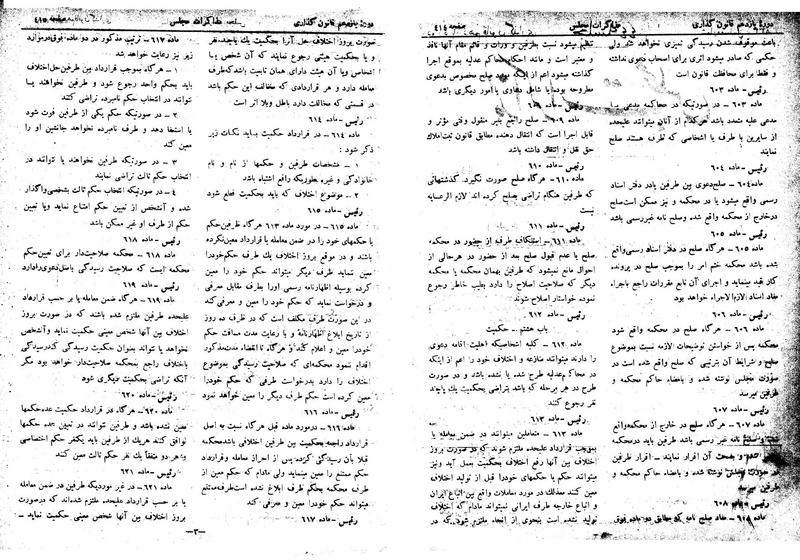 دوره یازدهم قانون گذاری
مذاکرات مجلس
صفحه ٤١٤
باعث موقوف شدن رسیدگی تمیزی نخواهد شد ولی
حکمی که صادر میشود اثری برای اصحاب دعوی نداشته
و فقط برای محافظت قانون است
رئیس - ماده ٦٠٣
ماده ٦٠٣ - در صورتیکه در محاکمه مدعی یا
مدعی علیه متعدد باشد هر کدام از آنان میتوانند علیحده
از سایرین با طرف یا اشخاصی که طرف هستند صلح
نمایند
رئیس - ماده ٦٠٤
ماده ٦٠٤ - صلح دعوی بین طرفین یا در دفتر اسناد
رسمی واقع میشود یا در محکمه و نیز ممکن است صلح
در خارج از محکمه واقع شده و صلح نامه غیر رسمی باشد
رئیس - ماده ٦٠٥
ماده ٦٠٥ - هر گاه صلح در دفتر اسناد رسمی واقع
شده باشد محکمه ختم امر را بموجب صلح در پرونده
کار قید مینماید و اجرای آن تابع مقررات راجع باجراء
مفاد اسناد لازم الاجراء خواهد بود
رئیس - ماده ٦٠٦
ماده ٦٠٦ - هر گاه صلح در محکمه واقع شود
محکمه پس از خواندن توضیحات لازمه نسبت بموضوع
صلح و شرایط آن بترتیبی که صلح واقع شده است در
صورت مجلس نوشته شده و بامضاء حاکم محکمه و
طرفین میرسد
رئیس - ماده ٦٠٧
ماده ٦٠٧ - هر گاه صلح در خارج از محکمه واقع
شده و صلح نامه غیر رسمی باشد طرفین باید در محکمه
حاضر و بصحت آن اقرار نمایند - اقرار طرفین
در صورت مجلس نوشته شده و بامضاء حاکم محکمه و
طرفین میرسد
رئیس - ماده ٦٠٨
ماده ٦٠٨ - مفاد صلح نامه که مطابق دو ماده فوق
تنظیم میشود نسبت بطرفین و وراث و قائم مقام آنها نافذ
و معتبر است و مانند احکام محاکم عدلیه بموقع اجرا
گذاشته میشود اعم از اینکه مورد صلح مخصوص بدعوی
مطروحه بوده یا شامل دعاوی یا امور دیگری باشد
رئیس - ماده ٦٠٩
ماده ٦٠٩ - صلح راجع بغیر منقول وقتی مؤثر و
قابل اجرا است که انتقال دهنده مطابق قانون ثبت املاک
حق نقل و انتقال داشته باشد
رئیس - ماده ٦١٠
ماده ٦١٠ - هر گاه صلح صورت نگیرد گذشتهائی
که طرفین هنگام تراضی بصلح کرده اند لازم الرعایه
نیست
رئیس - ماده ٦١١
ماده ٦١١ - استنکاف طرف از حضور در محکمه
صلح یا عدم قبول صلح بعد از حضور در هر حالی از
احوال مانع نمیشود که طرفین بهمان محکمه یا محکمه
دیگر که صلاحیت اصلاح را دارد بطیب خاطر رجوع
نموده خواستار اصلاح شوند
رئیس - ماده ٦١٢
باب هشتم - حکمیت
ماده ٦١٢ - کلیه اشخاصیکه اهلیت اقامه دعوی
را دارند میتوانند منازعه و اختلاف خود را اعم از اینکه
در محاکم عدلیه طرح شده یا نشده باشد و در صورت
طرح در هر مرحله که باشد بتراضی بحکمیت یک یا چند
نفر رجوع کنند
رئیس - ماده ٦١٣
ماده ٦١٣ - متعاملین میتوانند در ضمن معامله یا
بموجب قرارداد علیحده ملتزم شوند که در صورت بروز
اختلاف بین آنها رفع اختلاف بحکمیت بعمل آید و نیز
میتوانند حکم یا حکمهای خود را قبل از تولید اختلاف
معین کنند معذلک در مورد معاملات واقع بین اتباع ایران
و اتباع خارجه طرف ایرانی نمیتواند مادام که اختلاف
تولید نشده است بنحوی از انحاء ملتزم شود که در
دوره یازدهم قانون گذاری
مذاکرات مجلس
صفحه ٤١٥
صورت بروز اختلاف حل آنرا بحکمیت یک یا چند نفر
و یا بحکمیت هیئتی رجوع نمایند که آن شخص یا
اشخاص و یا آن هیئت دارای همان تابعیت باشد که طرف
معامله دارد و هر قراردادی که مخالف این حکم باشد
در قسمتی که مخالفت دارد باطل و بلا اثر است
رئیس - ماده ٦١٤
ماده ٦١٤ - در قرارداد حکمیت باید نکات زیر
ذکر شود:
١ - مشخصات طرفین و حکمها از نام و نام
خانوادگی و غیره بطوریکه رافع اشتباه باشد
٢ - موضوع اختلاف که باید بحکمیت قطع شود
رئیس - ماده ٦١٥
ماده ٦١٥ - در مورد ماده ٦١٣ هر گاه طرفین حکم
یا حکمهای خود را در ضمن معامله یا قرارداد معین نکرده
باشند و در موقع بروز اختلاف یک طرف حکم خود را
معین نماید طرف دیگر میتواند حکم خود را معین
کرده بوسیله اظهارنامه رسمی او را بطرف مقابل معرفی
و درخواست نماید که حکم خود را معین و معرفی کند
در این صورت طرف مکلف است که در ظرف ده روز
از تاریخ ابلاغ اظهارنامه و با رعایت مدت مسافت حکم
خود را معین و اعلام کند و هر گاه تا انقضاء مدت مذکور
اقدام ننمود محکمه‌ای که صلاحیت رسیدگی بموضوع
اختلاف را دارد بدرخواست طرفی که حکم خود را
معین کرده است حکم طرف دیگر را معین خواهد نمود
رئیس - ماده ٦١٦
ماده ٦١٦ - در مورد ماده قبل هر گاه نسبت به اصل
قرارداد راجعه بحکمیت بین طرفین اختلافی باشد محکمه
قبلا بآن رسیدگی کرده پس از احراز معامله و قرارداد
حکم ممتنع را معین مینماید ولی مادام که حکم معین از
طرف محکمه بطرف ابلاغ نشده است طرف ممتنع
میتواند حکم خود را معین و معرفی کند
رئیس - ماده ٦١٧
ماده ٦١٧ - ترتیب مذکور در دو ماده فوق در موارد
زیر نیز رعایت خواهد شد
١ - هر گاه بموجب قرارداد بین طرفین حل اختلاف
باید بحکم واحد رجوع شود و طرفین نخواهند یا
نتوانند در انتخاب حکم نامبرده تراضی کنند
٢ - در صورتیکه حکم یکی از طرفین فوت شود
یا استعفا دهد و طرف نامبرده نخواهد جانشین او را
معین کند
٣ - در صورتیکه طرفین نخواهند یا نتوانند در
انتخاب حکم ثالث تراضی نمایند
٤ - در صورتیکه انتخاب حکم ثالث بشخصی واگذار
شده و آنشخص از تعیین حکم امتناع نماید و یا تعیین
حکم از طرف او غیر ممکن باشد
رئیس - ماده ٦١٨
ماده ٦١٨ - محکمه صلاحیت‌دار برای تعیین حکم
محکمه ایست که صلاحیت رسیدگی باصل دعوی را دارد
رئیس - ماده ٦١٩
ماده ٦١٩ - هر گاه ضمن معامله یا بر حسب قرارداد
علیحده طرفین ملتزم شده باشند که در صورت بروز
اختلاف بین آنها شخص معینی حکمیت نماید و آنشخص
نخواهد یا نتواند بعنوان حکمیت رسیدگی کند رسیدگی
باختلاف راجع بمحکمه صلاحیت‌دار خواهد بود مگر
آنکه تراضی بحکمیت دیگری شود
رئیس - ماده ٦٢٠
ماده ٦٢٠ - هر گاه در قرارداد حکمیت عده حکمها
معین نشده باشد و طرفین نتوانند در تعیین عده حکم
توافق کنند هر یک از طرفین باید یکنفر حکم اختصاصی
و هر دو متفقاً یک نفر حکم ثالث معین کنند
رئیس - ماده ٦٢١
ماده ٦٢١ - در غیر موردیکه طرفین در ضمن معامله
یا بر حسب قرارداد علیحده ملتزم شده‌اند که در صورت
بروز اختلاف بین آنها شخص معینی حکمیت نماید -
-٣-